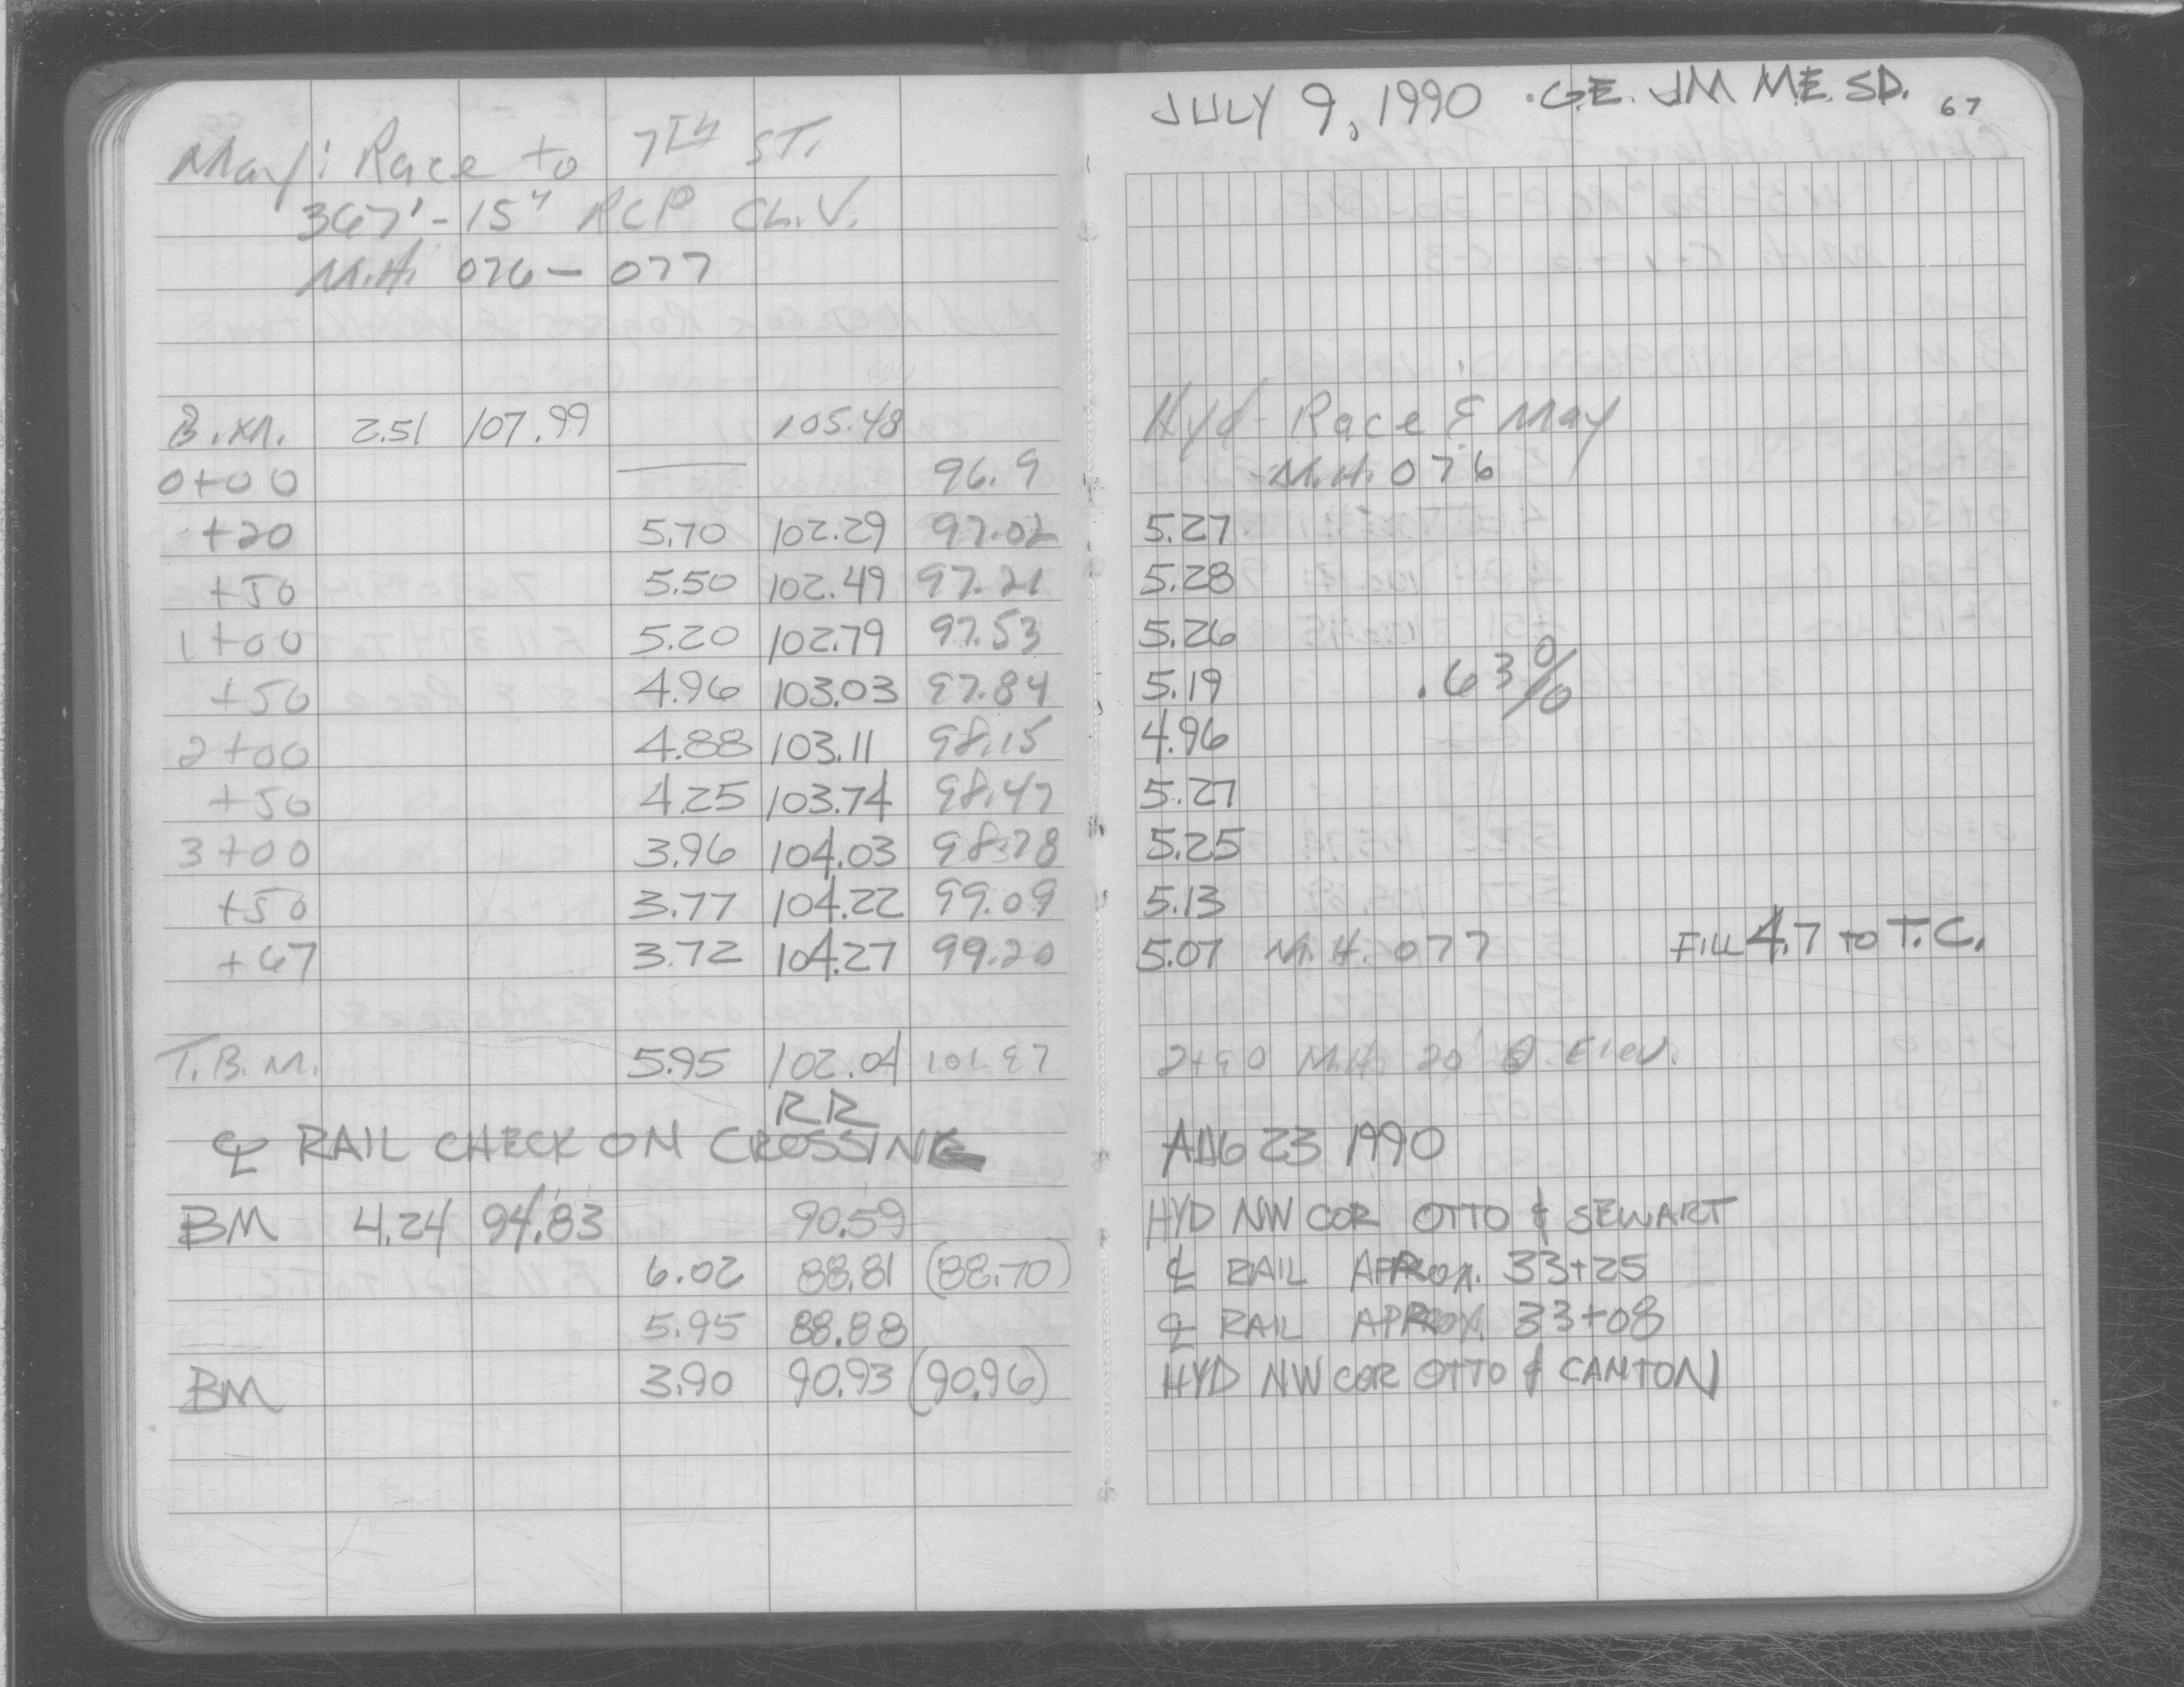 May: Race to 7TH ST.
367'-15" RCP CL.V.
M.H. 076-077
B.M. 2.51 107.99 105.48
0+00 96.9
+20 5.70 102.29 97.02
+50 5.50 102.49 97.21
1+00 5.20 102.79 97.53
+50 4.96 103.03 97.84
2+00 4.88 103.11 98.15
+50 4.25 103.74 98.47
3+00 3.96 104.03 98.78
+50 3.77 104.22 99.09
+67 3.72 104.27 99.20
T.B.M. 5.95 102.04 101.97
RR
℄ RAIL CHECK ON CROSSING
BM 4.24 94.83 90.59
6.02 88.81 (88.70)
5.95 88.88
BM 3.90 90.93 (90.96)
JULY 9, 1990 G.E. JM M.E. SD. 67
Hyd Race & May
M.H. 076
5.27
5.28
5.26
5.19 .63%
4.96
5.27
5.25
5.13
5.07 M.H. 077 FILL 4.7 TO T.C.
2+90 M.H. 20' Elev.
AUG 23 1990
HYD NW COR OTTO & SEWART
℄ RAIL APPROX. 33+25
℄ RAIL APPROX. 33+08
HYD NW COR OTTO & CANTON